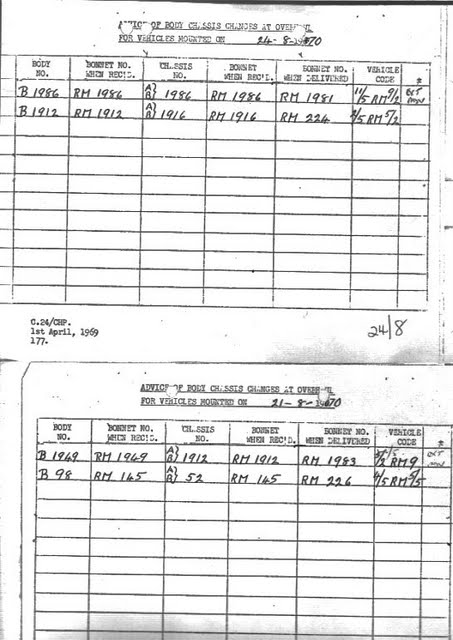 ADVICE OF BODY CHASSIS CHANGES AT OVERHAUL
FOR VEHICLES MOUNTED ON 24-8-1970
BODY NO. BONNET NO. WHEN REC'D. CHASSIS NO. BONNET WHEN REC'D. BONNET NO. WHEN DELIVERED VEHICLE CODE *
B 1986 RM 1986 A} B} 1986 RM 1986 RM 1981 11/5 RM 9/2
B 1912 RM 1912 A} B} 1916 RM 1916 RM 224 2/5 RM 5/2
C.24/CHP.
1st April, 1969
177.
24/8
ADVICE OF BODY CHASSIS CHANGES AT OVERHAUL
FOR VEHICLES MOUNTED ON 21-8-1970
BODY NO. BONNET NO. WHEN REC'D. CHASSIS NO. BONNET WHEN REC'D. BONNET NO. WHEN DELIVERED VEHICLE CODE *
B 1949 RM 1949 A} B} 1912 RM 1912 RM 1983 RM 9
B 98 RM 145 A} B} 52 RM 145 RM 226